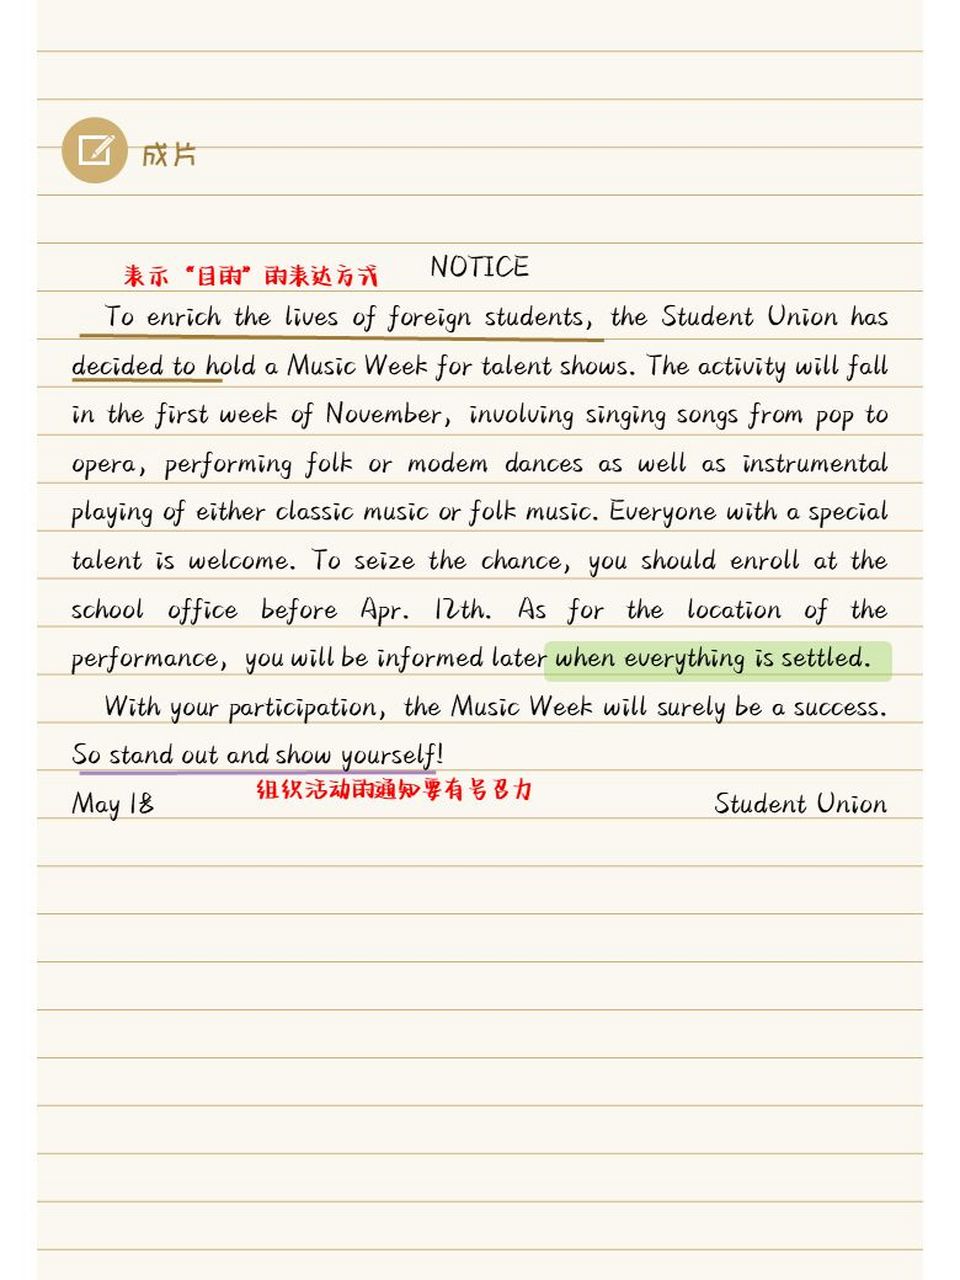 成片
NOTICE
表示“目的”的表达方式
To enrich the lives of foreign students, the Student Union has
decided to hold a Music Week for talent shows. The activity will fall
in the first week of November, involving singing songs from pop to
opera, performing folk or modem dances as well as instrumental
playing of either classic music or folk music. Everyone with a special
talent is welcome. To seize the chance, you should enroll at the
school office before Apr. 12th. As for the location of the
performance, you will be informed later when everything is settled.
With your participation, the Music Week will surely be a success.
So stand out and show yourself!
组织活动的通知要有号召力
May 18 Student Union